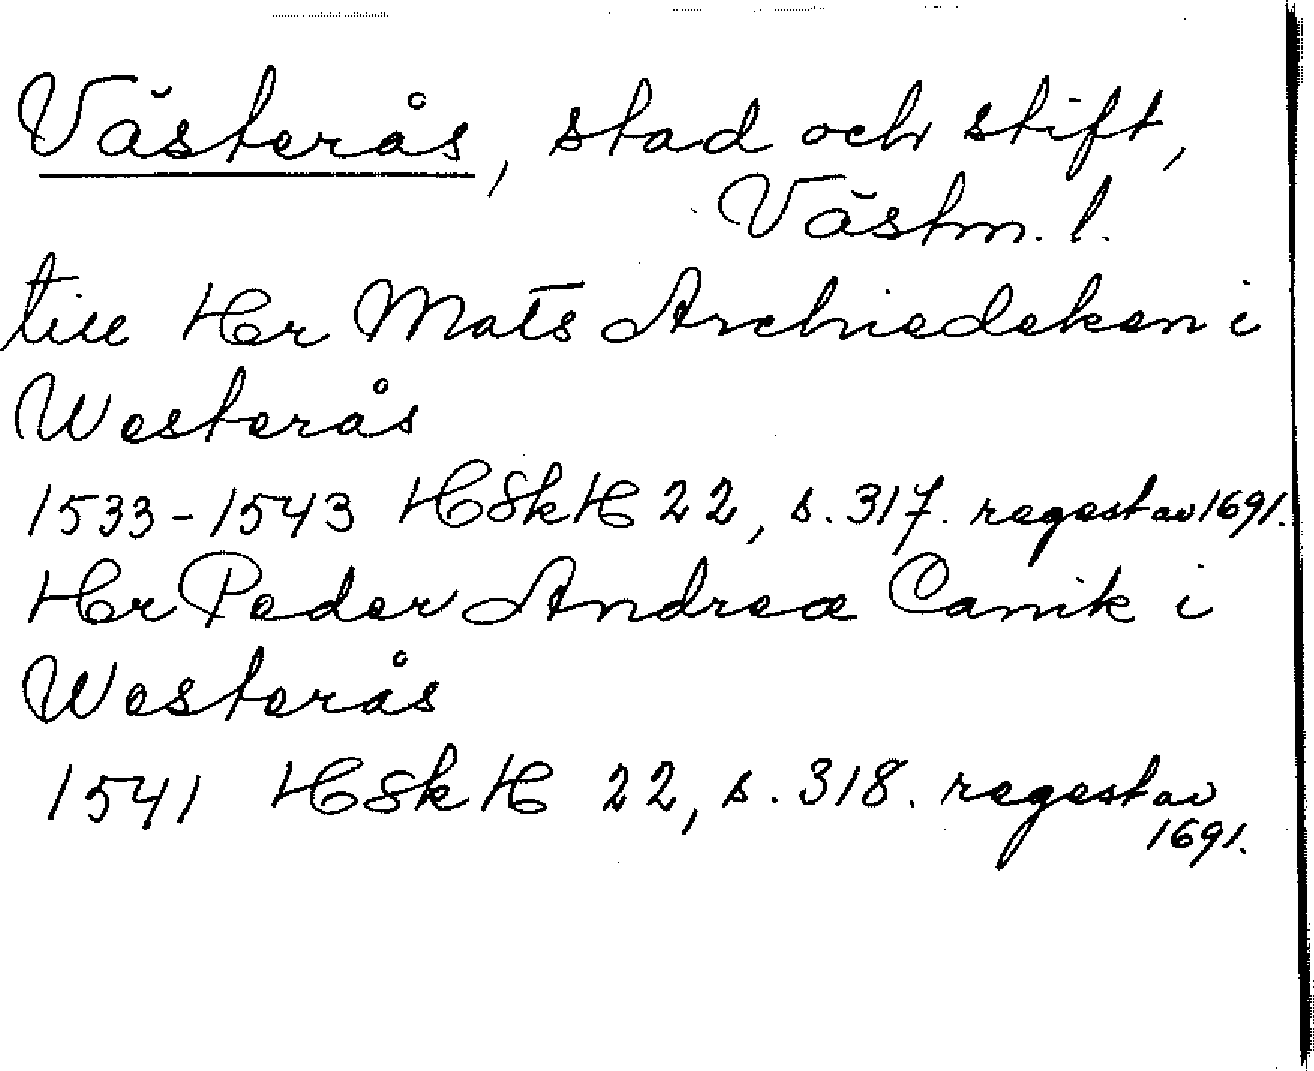 Västerås, stad och stift,
Västm. l.
till Her Mats Archiedeken i
Westerås
1533-1543 HSkH 22, s. 317. regest av 1691.
Her Peder Andreæ Canik i
Westerås
1541 HSkH 22, s. 318. regest av
1691.